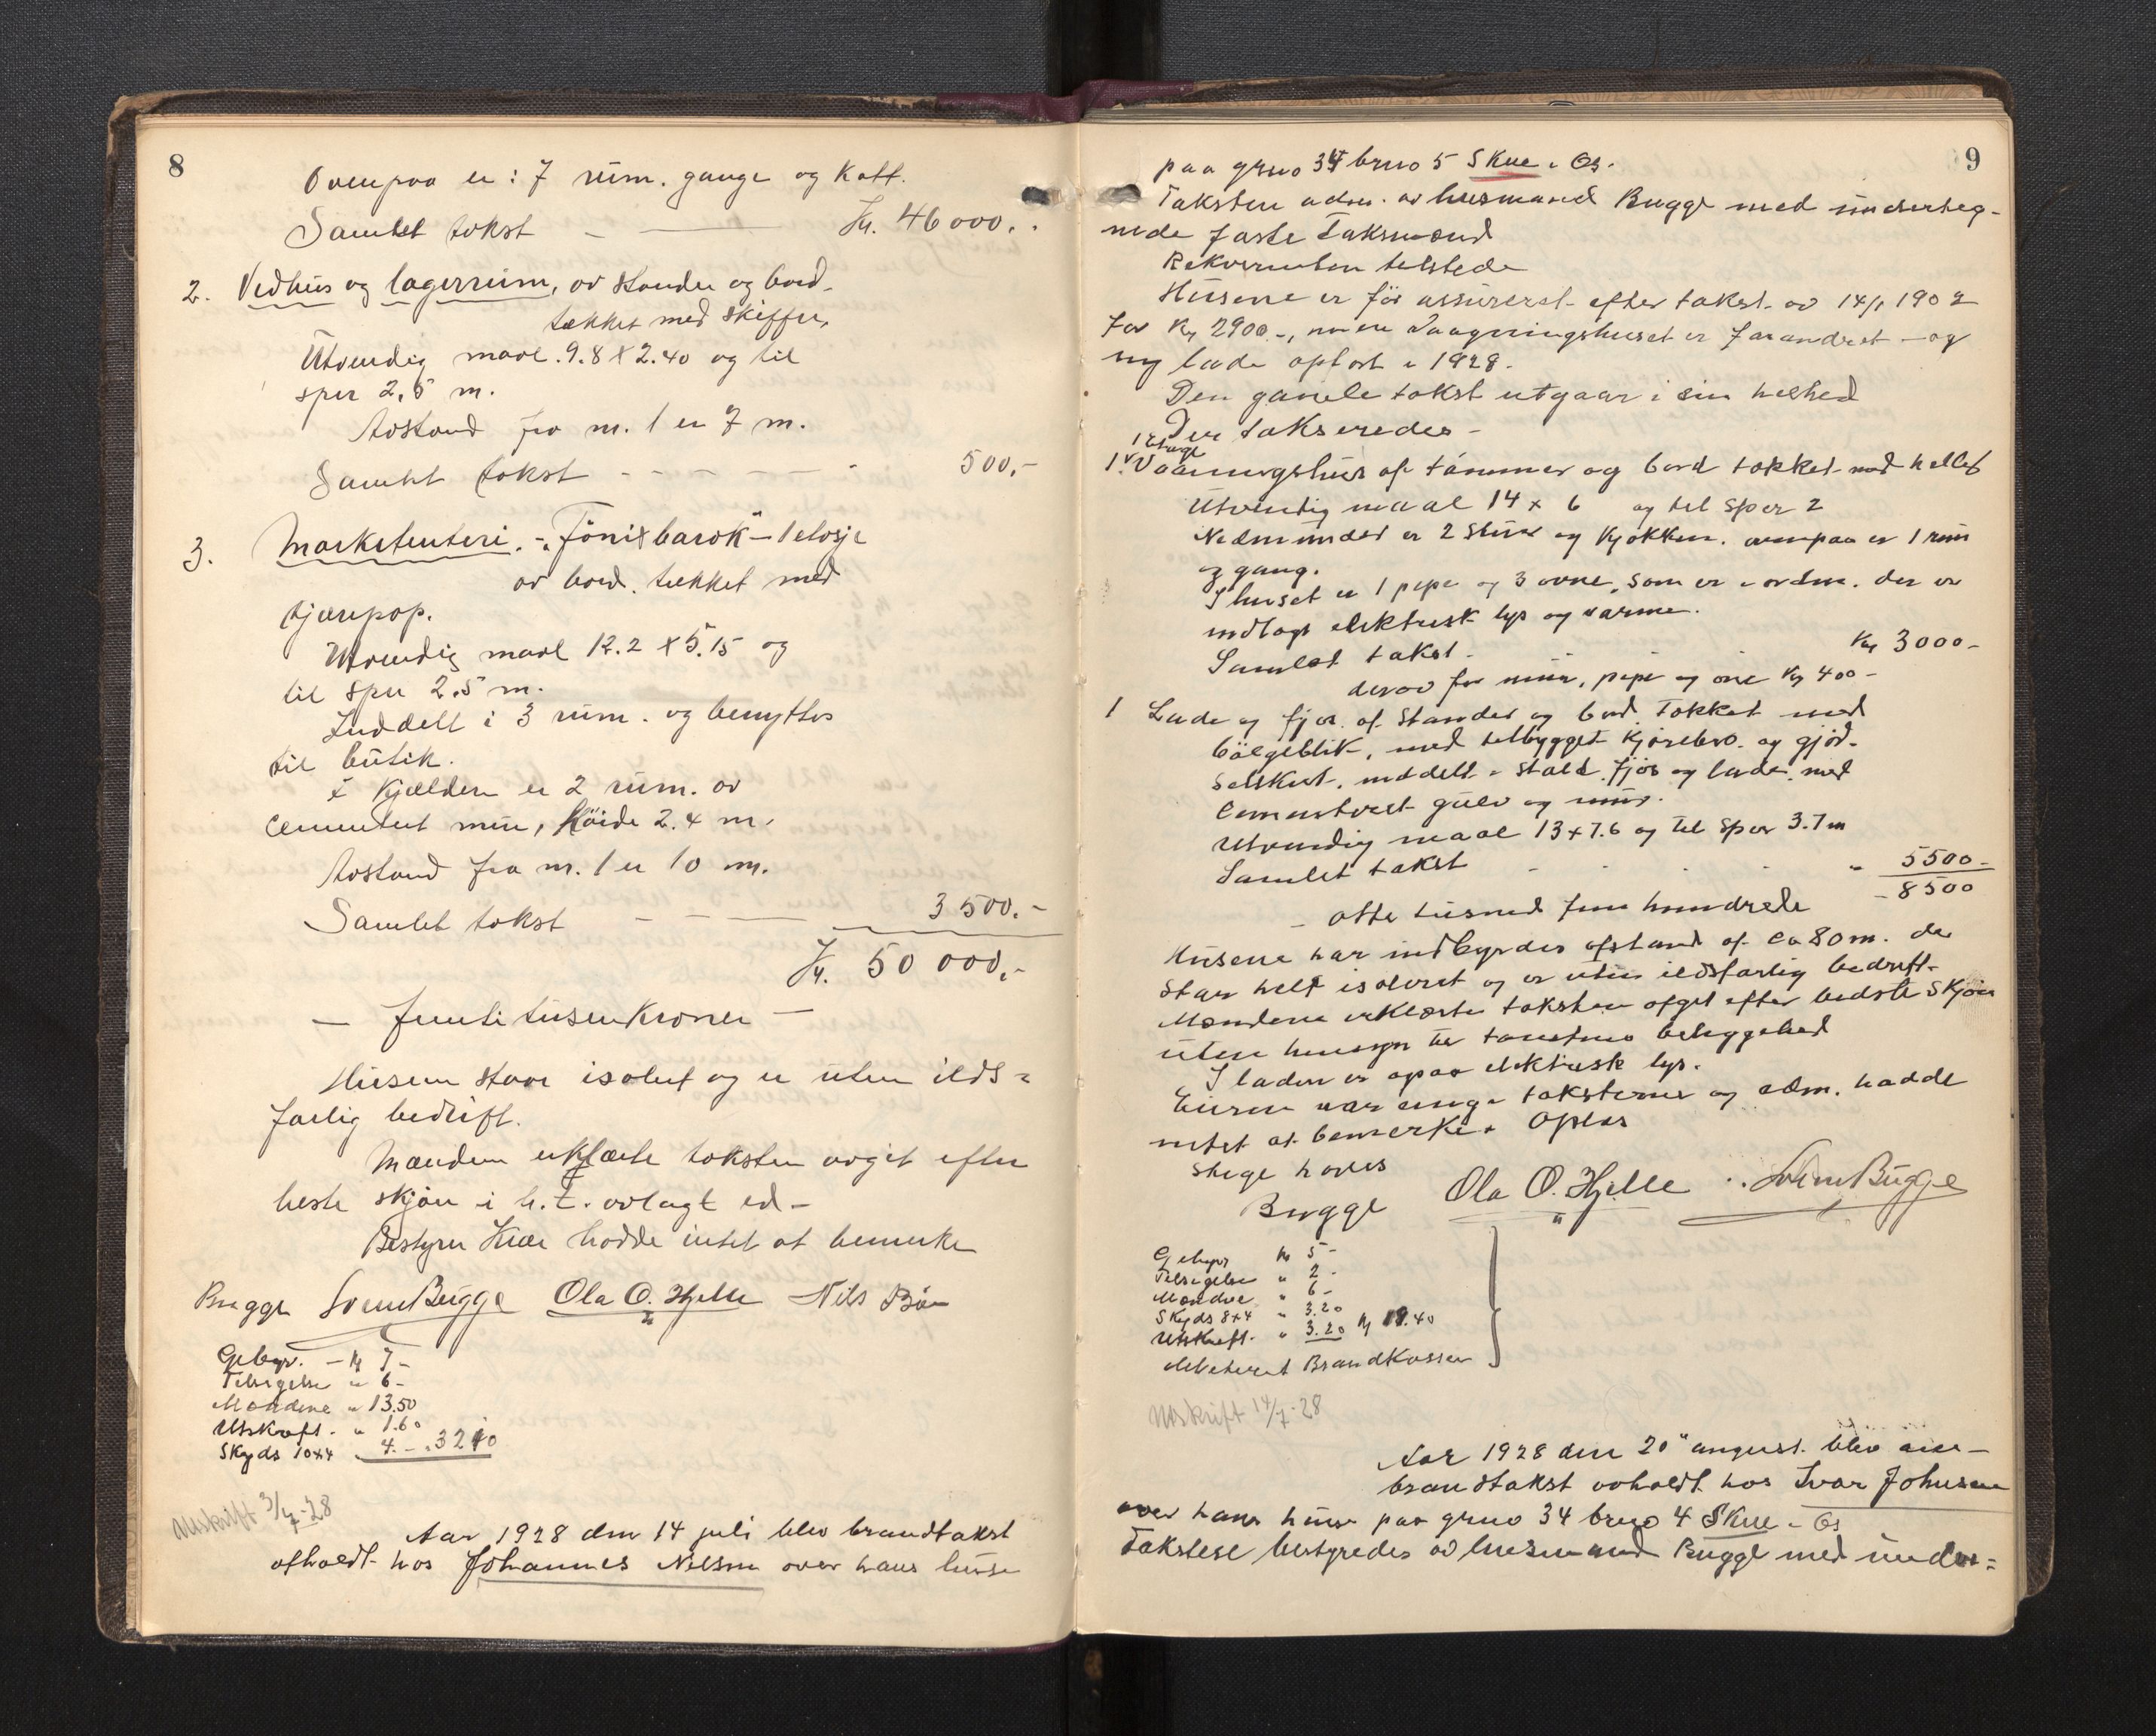 8
Ovenpaa er: 7 rum. gange og kott.
Samlet takst - Kr. 46000.-
2. Vedhus og lagerrum, av stender og bord.
tækket med skiffer.
Utvendig maal. 9.8 x 2.40 og til
sper 2,5 m.
Avstand fra nr. 1 er 7 m.
Samlet takst - - - - 500,-
3. Marketenteri. - "Fönixbarak" - 1 etasje
av bord. tækket med
tjærepap.
Utvendig maal 12.2 x 5.15 og
til sper 2.5 m.
Inddelt i 3 rum. og benyttes
til butik.
I kjælderen er 2 rum. av
cementert mur, Höide 2.4 m.
Avstand fra nr. 1 er 10 m.
Samlet takst - - - 3500.-
Kr. 50 000,-
- femti tusen kroner -
Husene staar isolert og er uten ilds-
farlig bedrift.
Mændene erklærte taksten avgit efter
beste skjön i h.t. avlagt ed -
Bestyrer Kiær hadde intet at bemerke
Bugge Svein Bugge Ola O. Hjelle Nils Bö
Gebyr. - kr 7 -
Tilsigelse " 6 -
Mændene " 13.50
Utskrift. " 1.60
Skyds 10x4 4. - 32.10
Utskrift 3/7-28
Aar 1928 den 14 juli blev brandtakst
afholdt hos Johannes Nilsen over hans huse
9
paa grno 34 brno 5 Skue i Os.
Taksten adm. av lensmand Bugge med underteg-
nede faste Taksmænd
Rekvirenten tilstede
Husene er för assurert efter takst av 14/1 1902
for Kr 2900.-, men Vaaningshuset er forandret - og
ny lade opfört i 1928.
Den gamle takst utgaar i sin helhed
Der takseredes -
1 etage
1. Vaaningshus af tömmer og bord tækket med heller
Utvendig maal 14 x 6 og til sper 2
Nedenunder er 2 stuer og kjøkken. ovenpaa er 1 rum
og gang.
I huset er 1 pipe og 3 ovne, som er i orden. der er
indlagt elektrisk lys og varme.
Samlet takst. - - Kr 3000-
derav for mur, pipe og ovne Kr 400 -
1 Lade og fjøs af stender og bord Tækket med
bölgeblik, med tilbygget kjörebro og gjöd-
selskur, inddelt i stald fjös og lade. med
Cementeret gulv og mur.
Utvendig maal 13 x 7.6 og til sper 3.7 m
Samlet takst - - - " 5500-
- 8500
- otte tusend fem hundrede
Husene har indbyrdes afstand af ca 80 m. de
staar helt isoleret og er uten ildsfarlig bedrift.
Mændene erklærte taksten afgit efter bedste skjön
uten hensyn til tomtens beliggehed
I laden er ogsaa elektrisk lys.
Eieren var enig i taksterne og adm. hadde
intet at bemerke. Oplæs
Stige haves
Bugge Ola O. Hjelle Svein Bugge
Gebyr kr 5-
Tilsigelse " 2-
Mændene " 6-
Skyds 8x4 " 3.20
Utskrift. " 3.20 kr 19.40
debiteret Brandkassen
Utskrift 14/7-28
Aar 1928 den 20" august. blev
brandtakst avholdt hos Ivar Johnsen
over hans huse paa grno 34 brno 4 Skue i Os
Takstene bestyredes av lensmand Bugge med under=